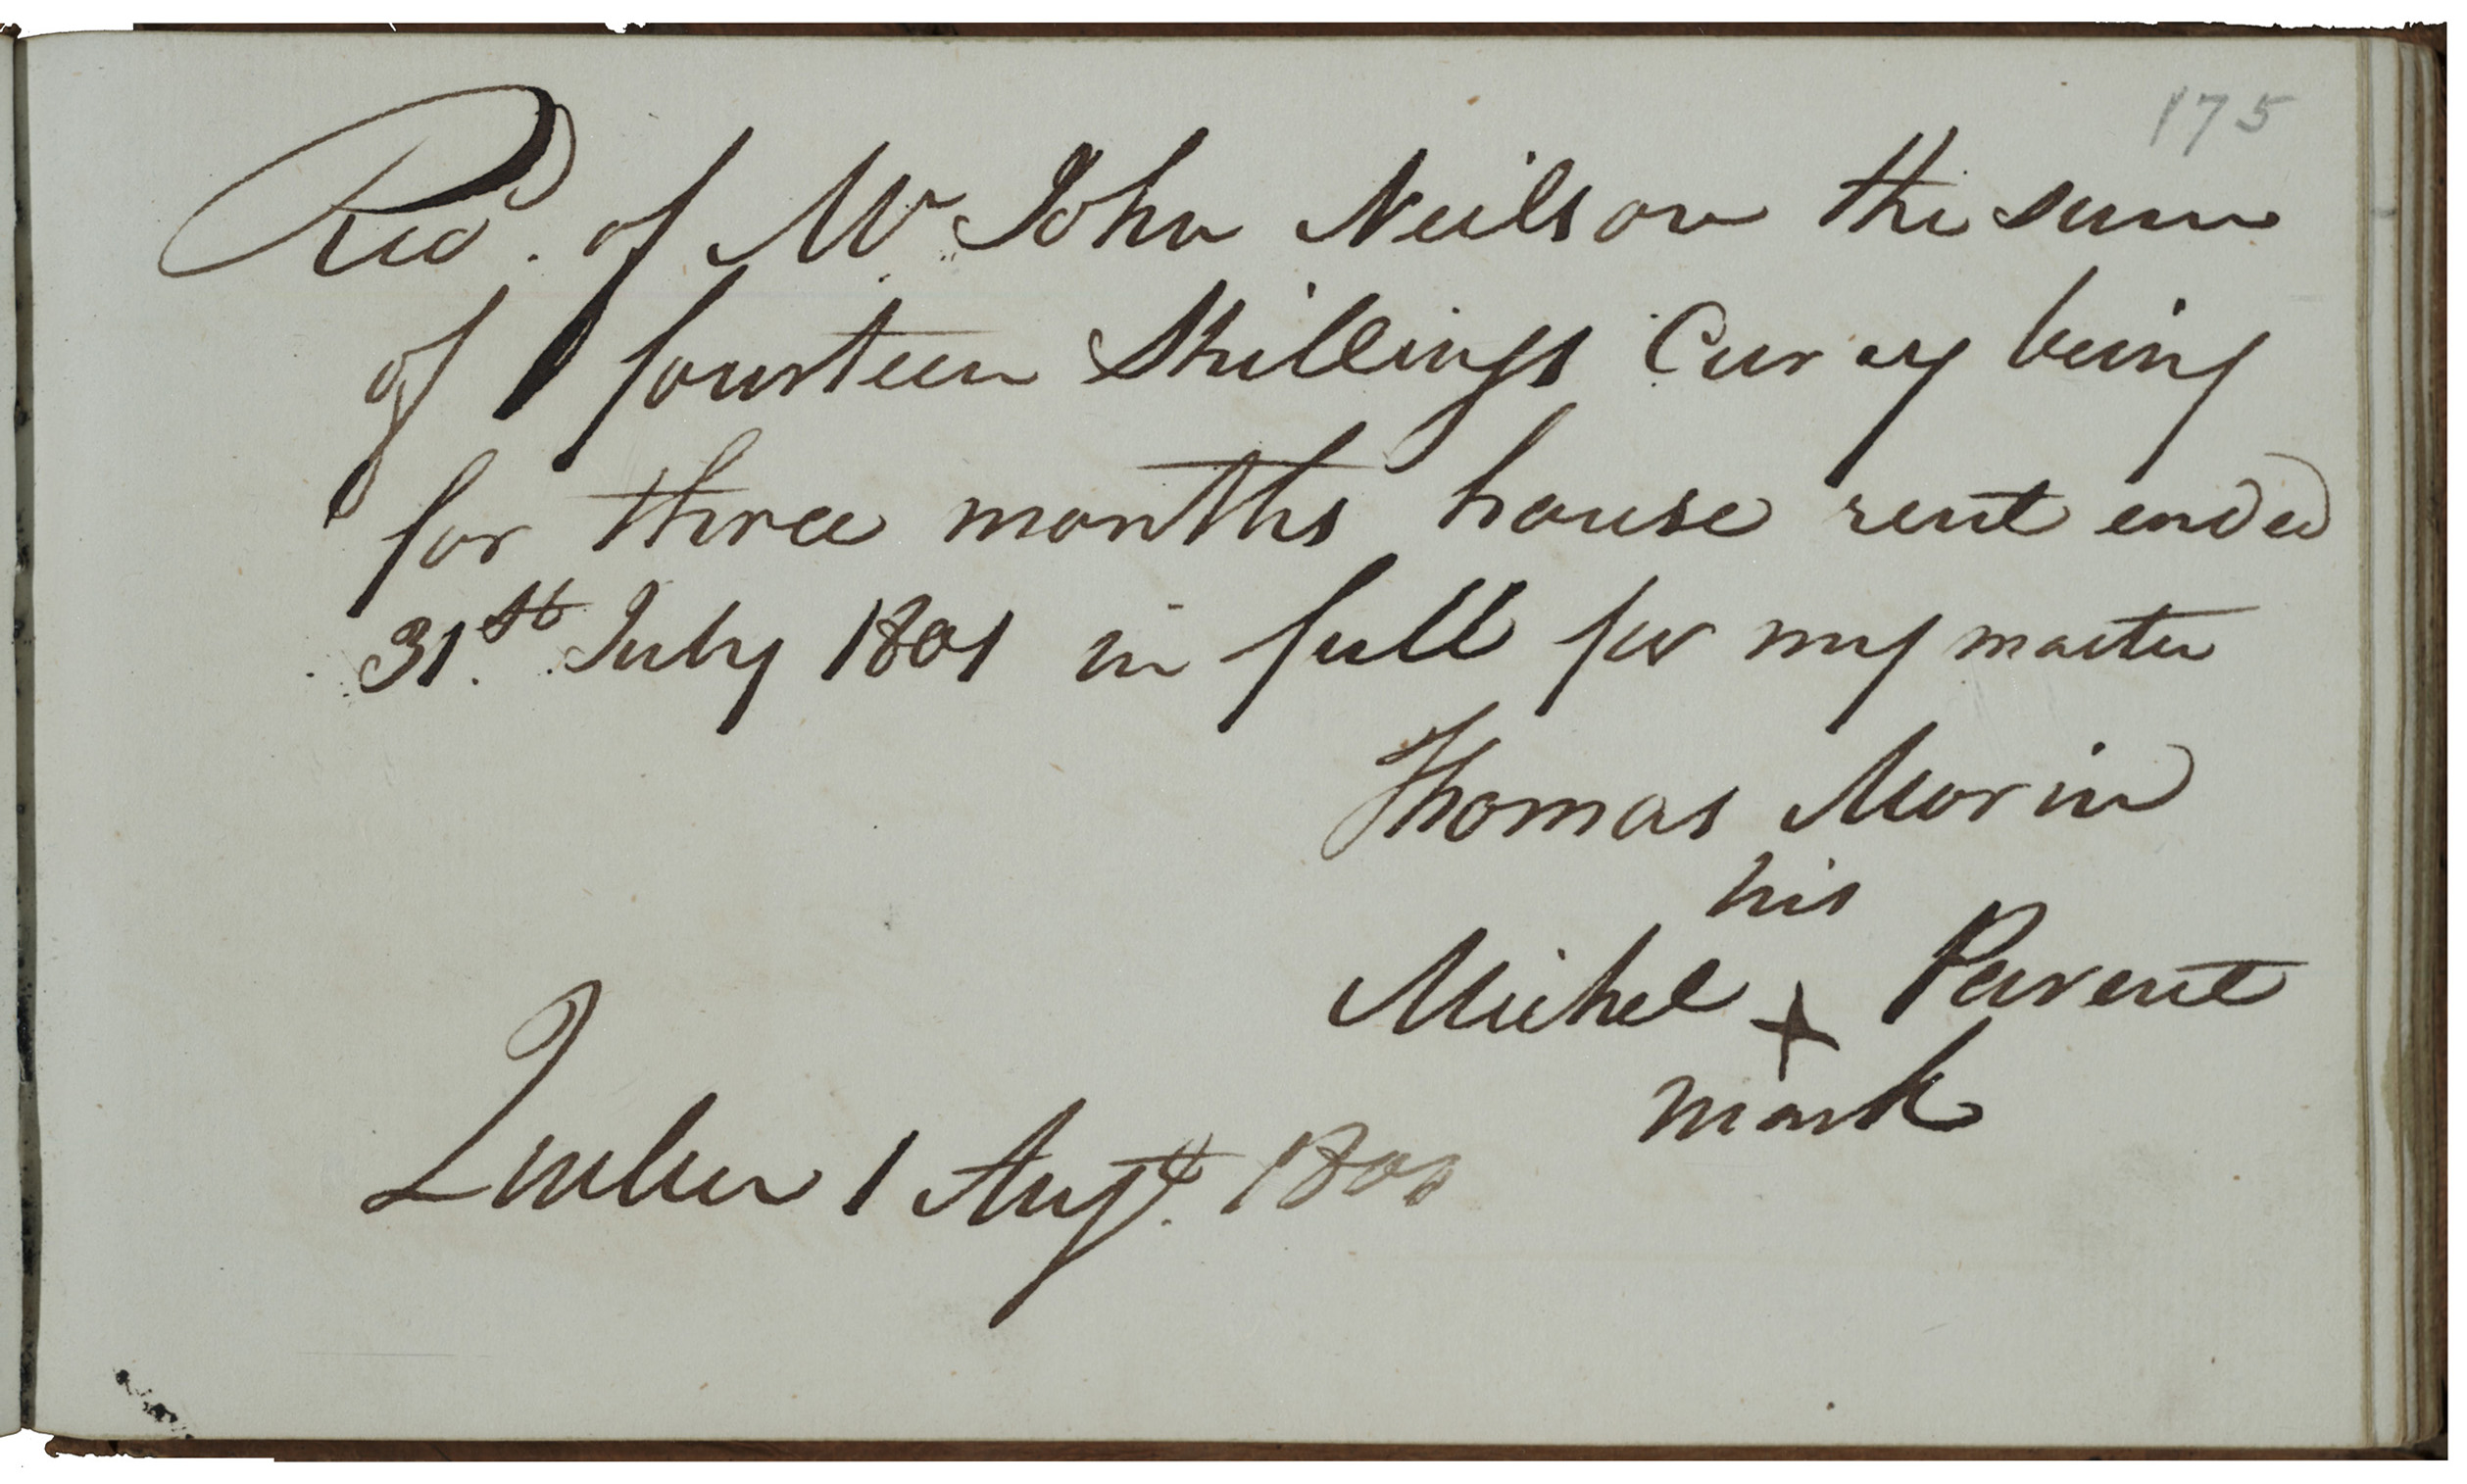 175
Recd. of Mr John Neilson the sum
of fourteen Shillings Curcy being
for three months house rent ended
31st. July 1801 in full for my master
Thomas Morin
his
Michel + Parent
mark
Quebec 1 Augt. 1801